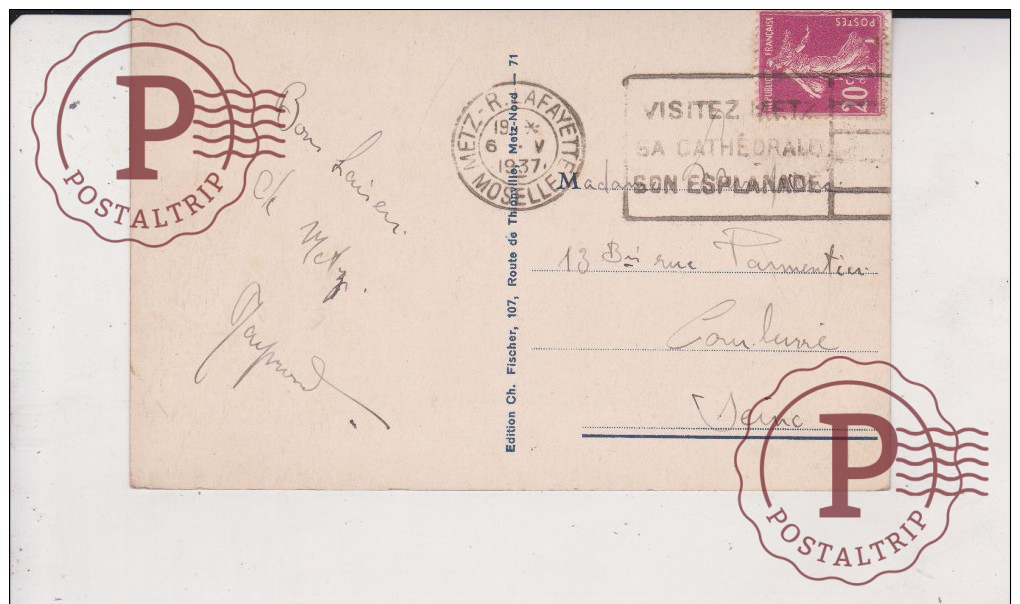 Bons baisers
de Metz
Raymond
Edition Ch. Fischer, 107, Route de Thionville, Metz-Nord — 71
METZ - R. LAFAYETTE
19 *
6 V
1937
MOSELLE
VISITEZ METZ
SA CATHÉDRALE
SON ESPLANADE
REPUBLIQUE FRANÇAISE
POSTES
20c
Madame
13 Bis rue Parmentier
Seine
P
POSTALTRIP
P
POSTALTRIP